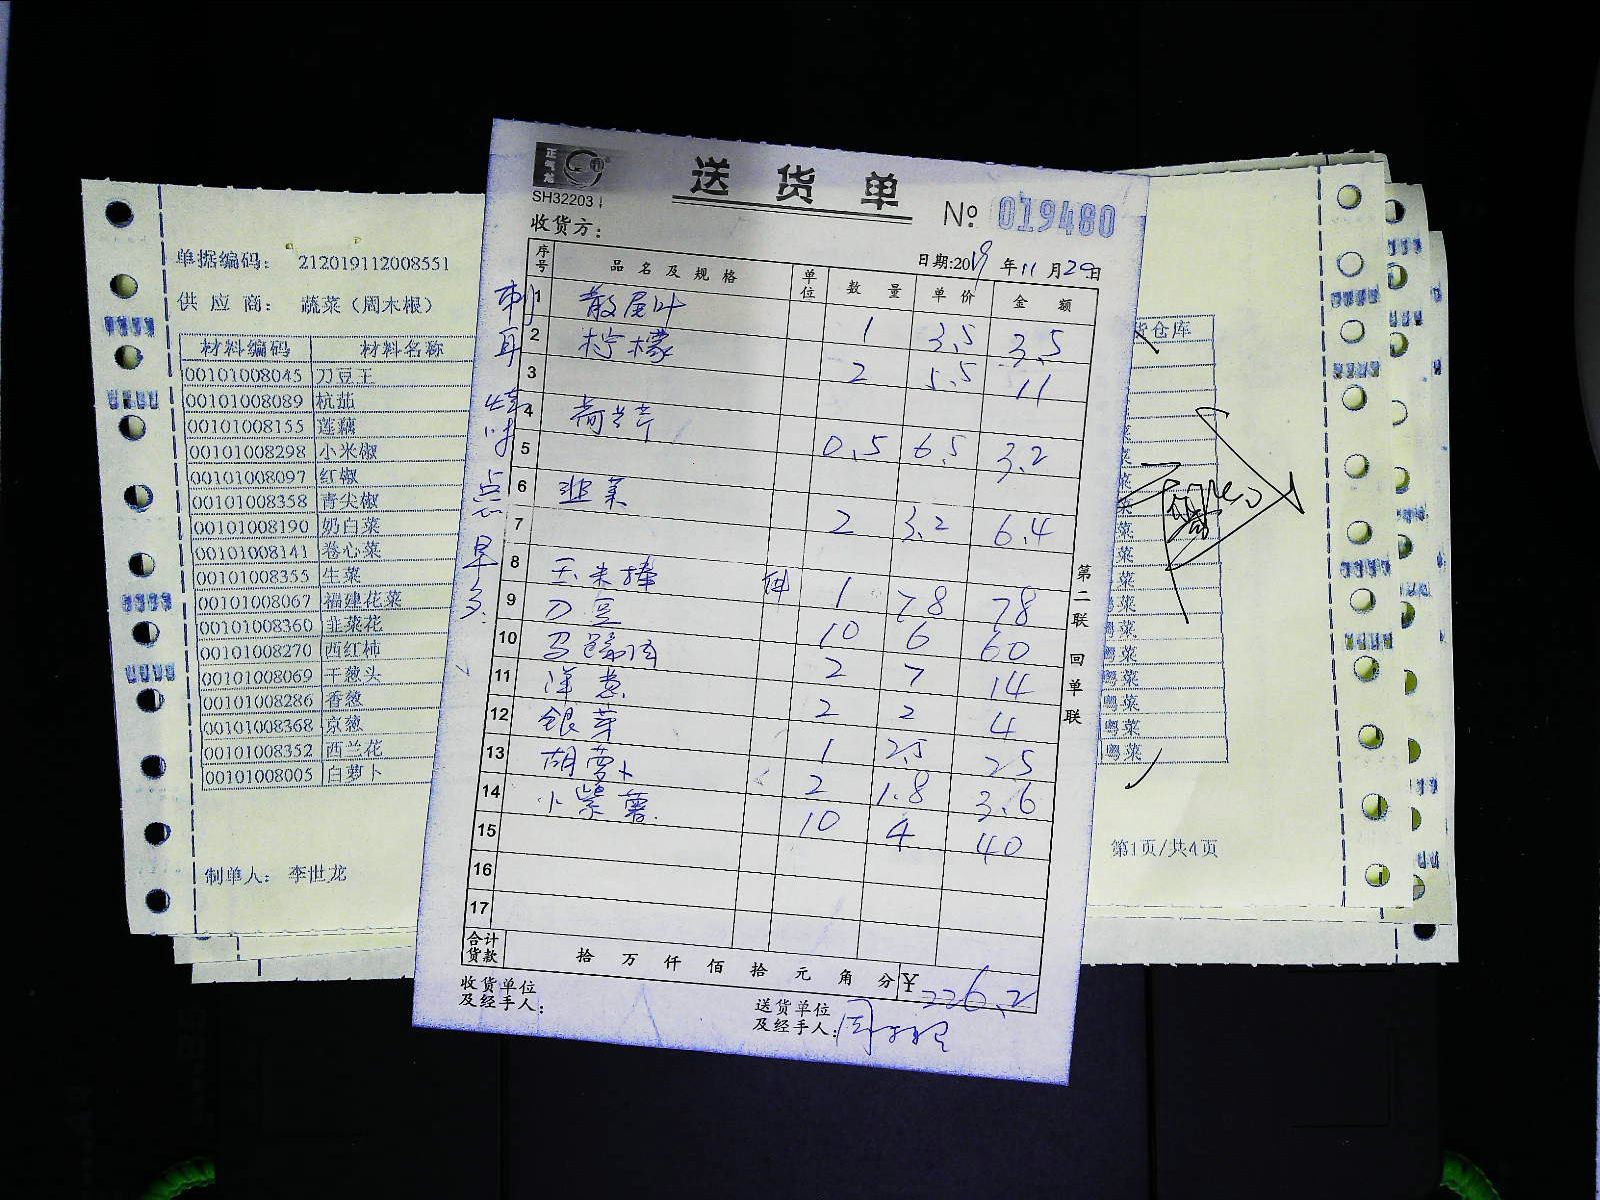 正气龙
SH32203
送货单
№ 019480
收货方：
日期:2019年11月20日
序号 品名及规格 单位 数量 单价 金额
1 散尾叶 1 3.5 3.5
2 柠檬 2 5.5 11
3
4 荷兰芹 0.5 6.5 3.2
5
6 韭菜 2 3.2 6.4
7
8 玉米棒 件 1 78 78
9 刀豆 10 6 60
10 马蹄肉 2 7 14
11 洋葱 2 2 4
12 银芽 1 2.5 2.5
13 胡萝卜 2 1.8 3.6
14 小紫薯 10 4 40
15
16
17
合计货款 拾万仟佰拾元角分 ¥226.2
收货单位及经手人：
送货单位及经手人：周木根
第二联 回单联
单据编码： 212019112008551
供应商： 蔬菜（周木根）
材料编码 材料名称
00101008045 刀豆王
00101008089 杭茄
00101008155 莲藕
00101008298 小米椒
00101008097 红椒
00101008358 青尖椒
00101008190 奶白菜
00101008141 卷心菜
00101008355 生菜
00101008067 福建花菜
00101008360 韭菜花
00101008270 西红柿
00101008069 干葱头
00101008286 香葱
00101008368 京葱
00101008352 西兰花
00101008005 白萝卜
制单人： 李世龙
货仓库
菜
菜
菜
菜
菜
菜
菜
粤菜
粤菜
粤菜
粤菜
粤菜
粤菜
粤菜
第1页/共4页